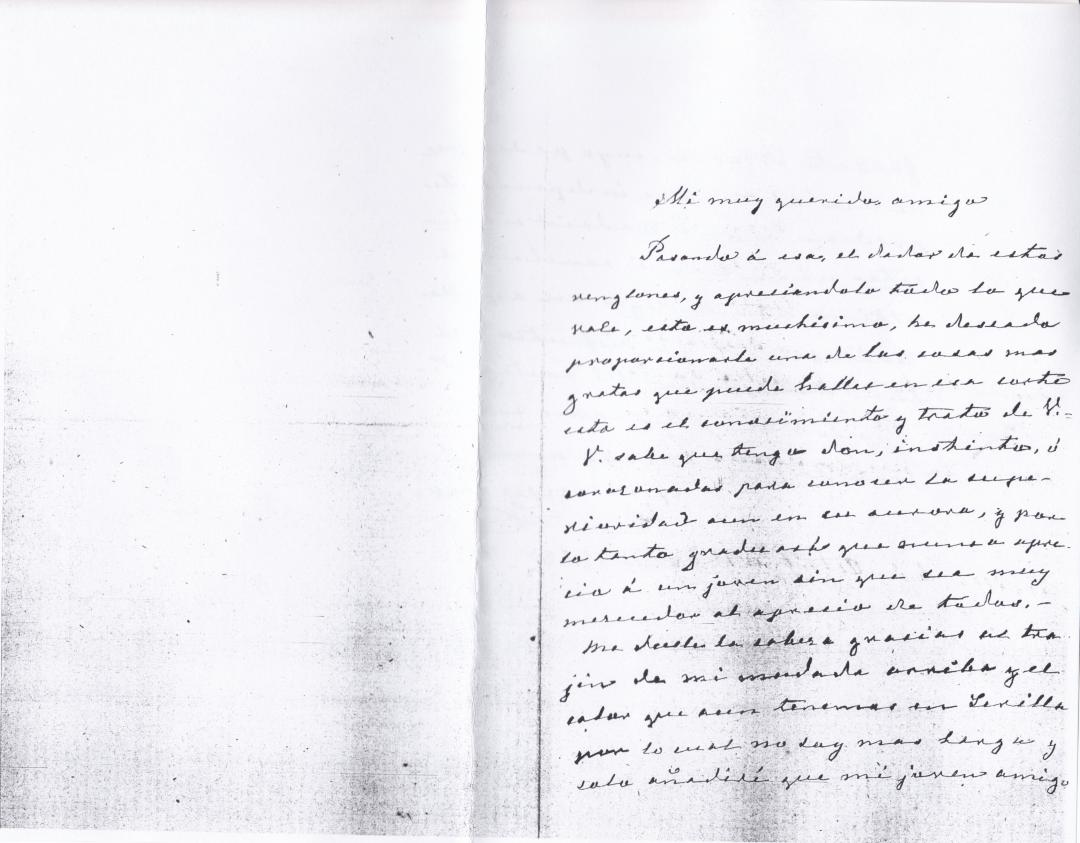 Mi muy querido amigo
Pasando á esa, el dador de estos
renglones, y apresiandolo todo lo que
vale, esto es muchisimo, he deseado
proporsionarle una de las cosas mas
gratas que puede hallar en esa corte
esto es el conosimiento y trato de V.-
V. sabe que tengo don, instinto, ó
corazonadas para conoser la supe-
rioridad aun en su aurora, y por
lo tanto que nunca apre-
cio á un joven sin que sea muy
meresedor al apresio de todos.-
Me duele la cabeza grasias al tra
jin de mi mudada arriba y el
calor que aun tenemos en Sevilla
por lo cual no soy mas larga y
solo añadiré que mi joven amigo